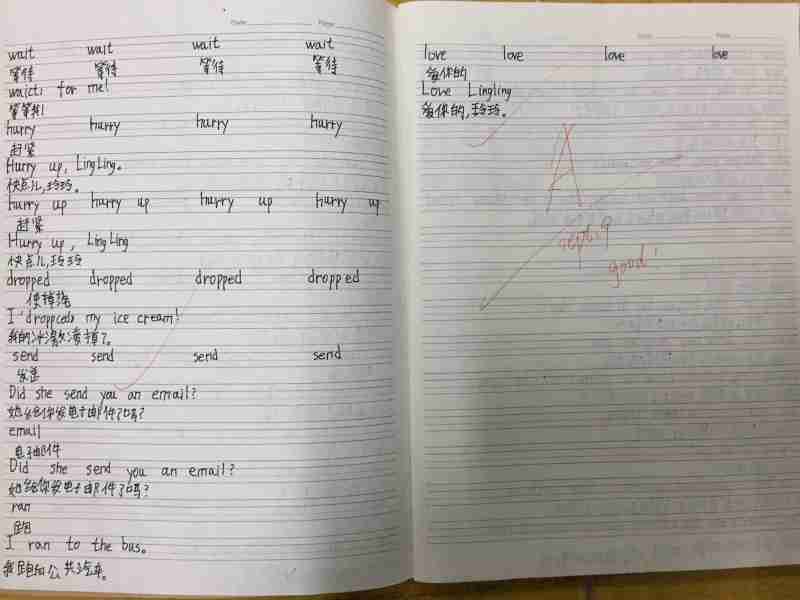 wait wait wait wait
等待 等待 等待 等待
wait: for me!
等等我!
hurry hurry hurry hurry
赶紧
Hurry up, LingLing。
快点儿,玲玲。
hurry up hurry up hurry up hurry up
赶紧
Hurry up, LingLing
快点儿,玲玲
dropped dropped dropped dropped
使掉落
I dropped my ice cream!
我的冰激凌掉了。
send send send send
发送
Did she send you an email?
她给你发电子邮件了吗?
email
电子邮件
Did she send you an email?
她给你发电子邮件了吗?
ran
跑
I ran to the bus。
我跑向公共汽车。
love love love love
爱你的
Love Lingling
爱你的,玲玲。
A
sept.9
good!